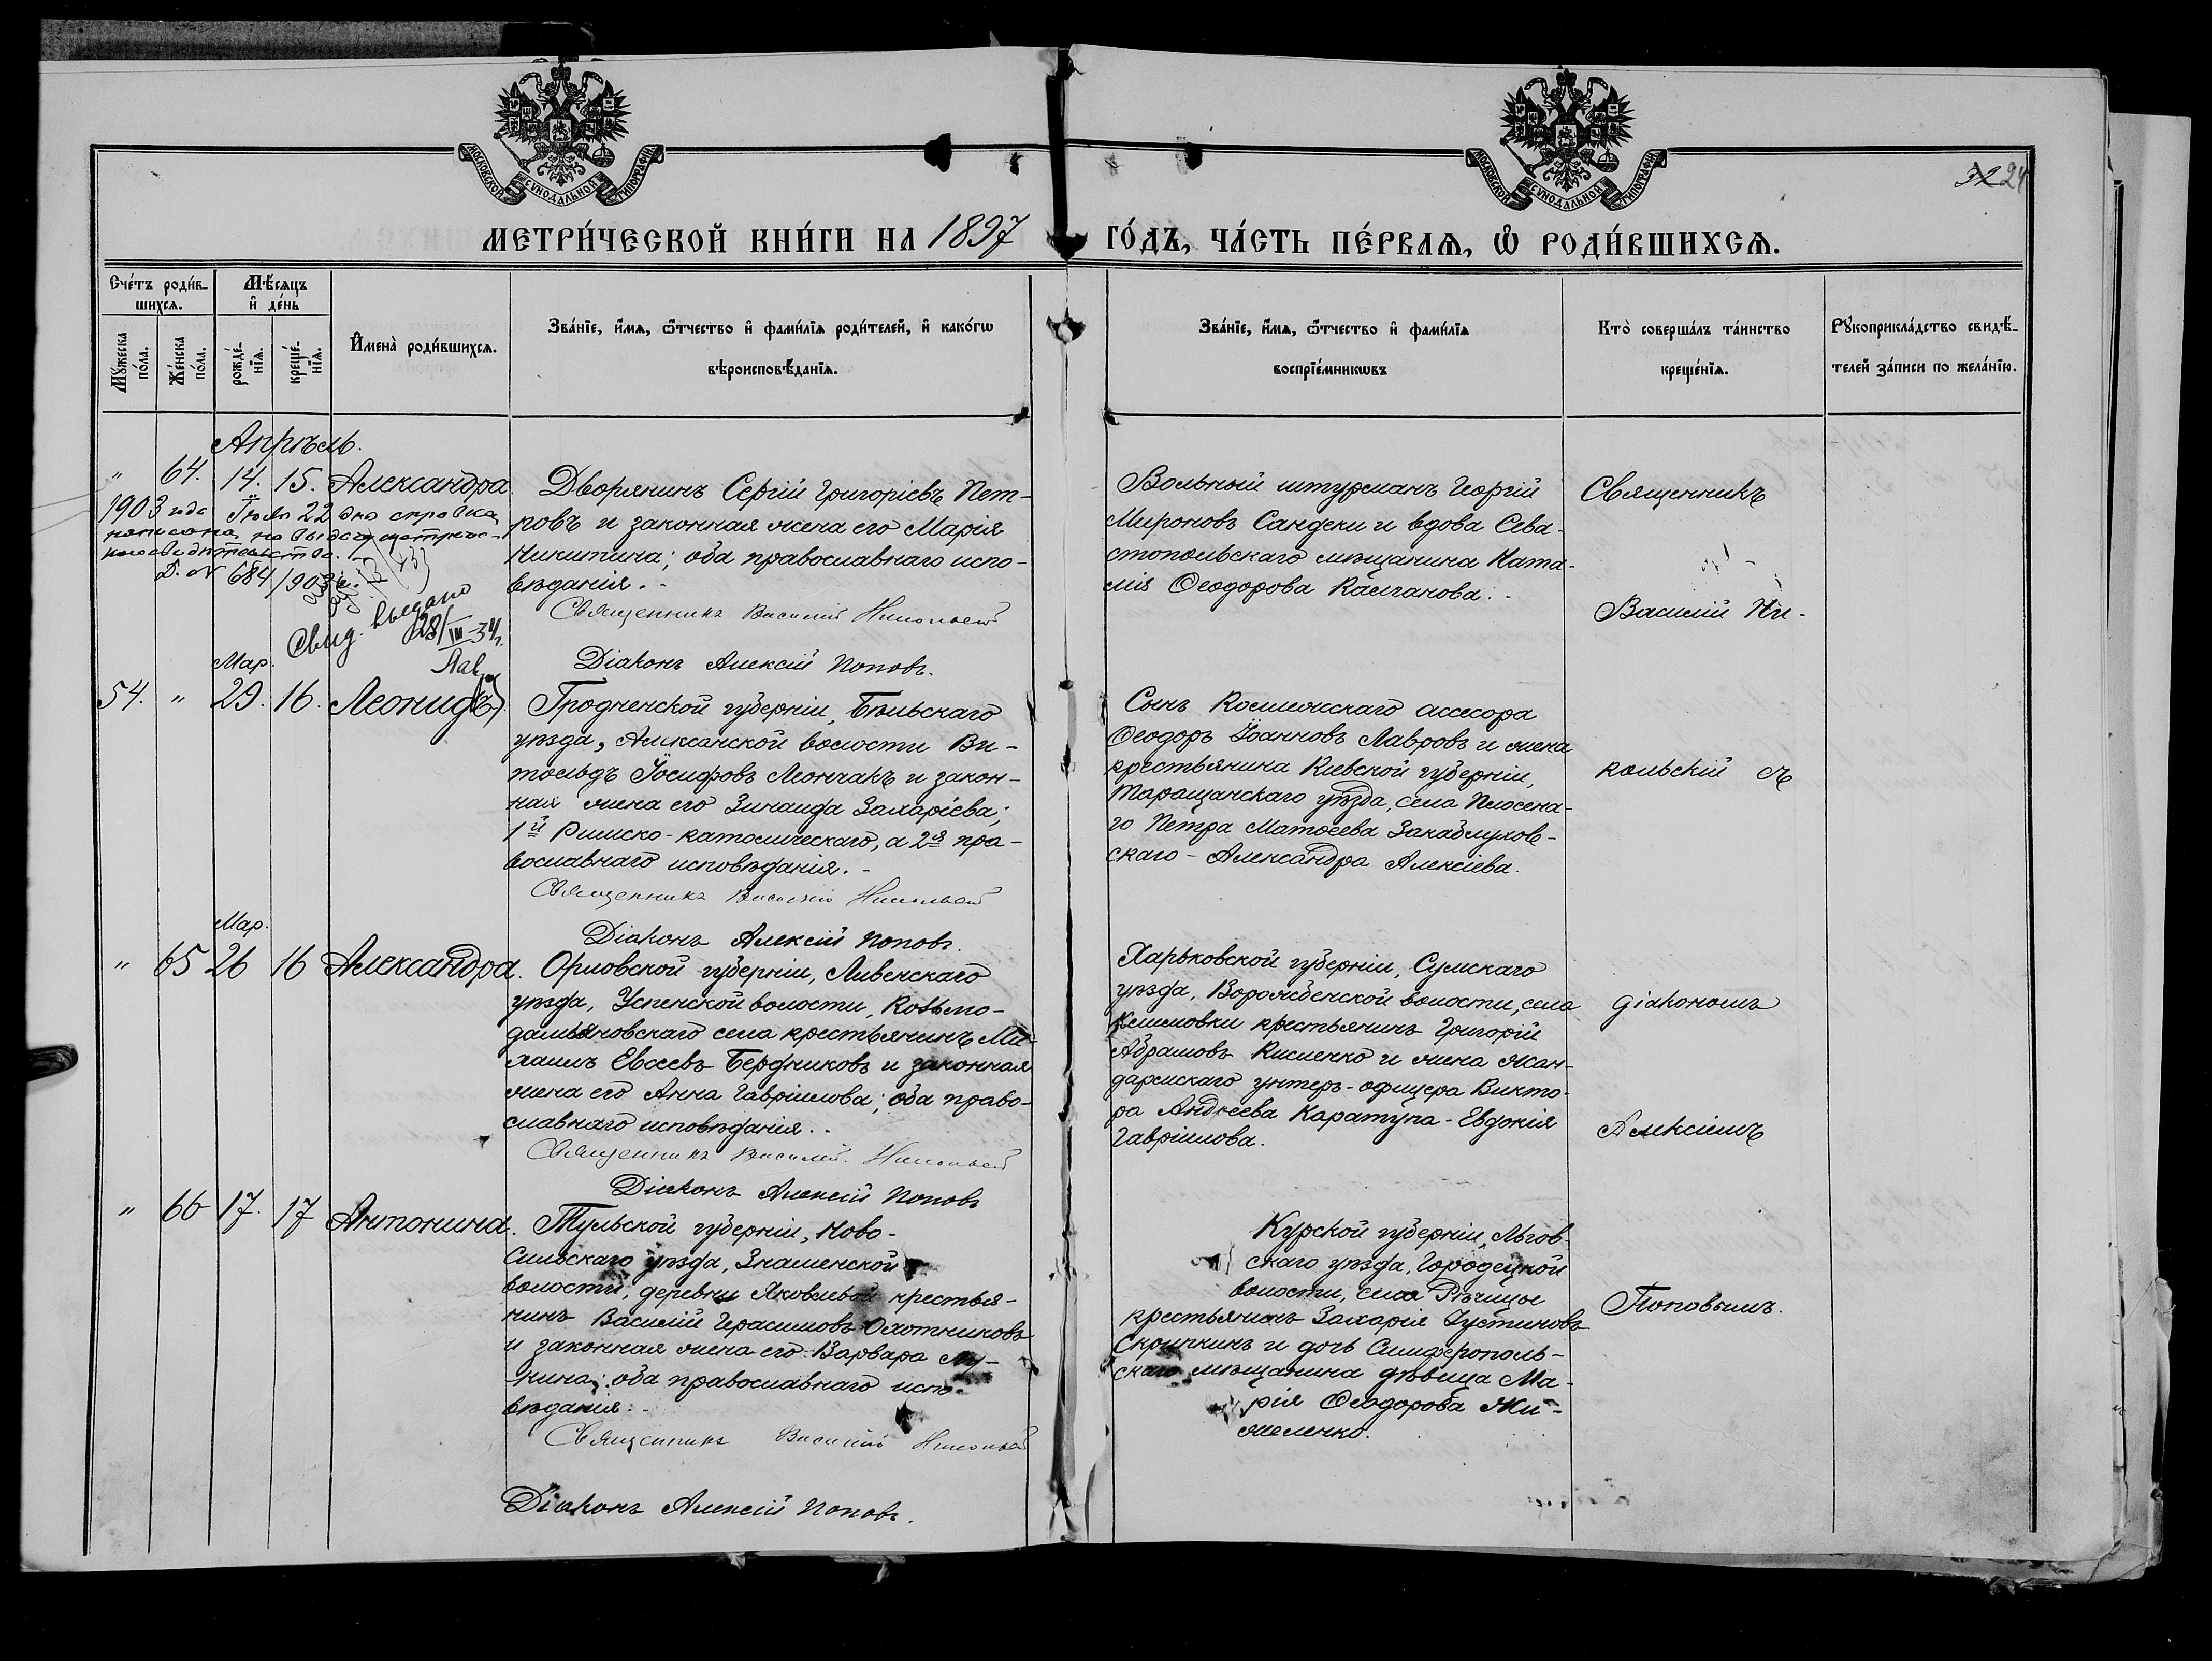 МОСКОВСКОЙ СѴНОДАЛЬНОЙ ТИПОГРАФІИ
МОСКОВСКОЙ СѴНОДАЛЬНОЙ ТИПОГРАФІИ
32 24
МЕТРИ́ЧЕСКОЙ КНИ́ГИ НА 1897 ГО́ДЪ, ЧА́СТЬ ПЕ́РВАѦ, Ѽ РОДИ́ВШИХСѦ.
Сче́тъ роди́в-
шихсѧ.
Мѣ́сѧцъ
и҆ де́нь
Мꙋ́жеска
по́ла.
Же́нска
по́ла.
рожде́-
нїѧ.
креще́-
нїѧ.
И҆мена̀ роди́вшихсѧ.
Зва́нїе, и҆́мѧ, ѻ҆́тчество и҆ фами́лїѧ роди́телей, и҆ како́гѡ
вѣроисповѣ́данїѧ.
Зва́нїе, и҆́мѧ, ѻ҆́тчество и҆ фами́лїѧ
воспрїе́мникѡвъ
Кто̀ соверша́лъ та́инство
креще́нїѧ.
Рꙋкоприкла́дство свидѣ́-
телей за́писи по жела́нїю.
Апрѣль.
" 64. 14. 15. Александра.
1903 года Іюля 22 дня справка
написана на выдачу метричес-
каго свидѣтельства.
Д. № 684/903 г.
Свид. выдано
28/III-34 г.
Дворянинъ Сергій Григоріевъ Пет-
ровъ и законная жена его Марія
Никитина; оба православнаго испо-
вѣданія.-
Священникъ Василій Никольскій
Діаконъ Алексій Поповъ.
Вольный штурманъ Георгій
Мироновъ Сандеки и вдова Сева-
стопольскаго мѣщанина Ната-
лія Ѳеодорова Калганова.-
Священникъ
Василій Ни-
Мар.
54. " 29. 16. Леонид(ъ).
Гродненской губерніи, Бѣльскаго
уѣзда, Алексанской волости Ви-
тольдъ Іосифовъ Леончакъ и закон-
ная жена его Зинаида Захаріева;
1й Римско-католическаго, а 2я пра-
вославнаго исповѣданія.-
Священникъ Василій Никольскій
Діаконъ Алексій Поповъ.
Сынъ Коллежскаго ассесора
Ѳеодоръ Іоанновъ Лавровъ и жена
крестьянина Кіевской губерніи,
Таращанскаго уѣзда, села Плосена-
го Петра Матѳеева Закаблуков-
скаго - Александра Алексіева.
кольскій съ
Мар.
" 65 26 16 Александра.
Орловской губерніи, Ливенскаго
уѣзда, Успенской волости, Козьмо-
дамьяновскаго села крестьянинъ Ми-
хаилъ Евсеевъ Бердниковъ и законная
жена его Анна Гавріилова; оба право-
славнаго исповѣданія.-
Священникъ Василій Никольскій
Діаконъ Алексій Поповъ
Харьковской губерніи, Сумскаго
уѣзда, Ворожбенской волости, села
Климовки крестьянинъ Григорій
Абрамовъ Кисленко и жена жан-
дармскаго унтеръ-офицера Викто-
ра Андреева Каратупа - Евдокія
Гавріилова.
діакономъ
Алексіемъ
" 66 17. 17 Антонина.
Тульской губерніи, Ново-
сильскаго уѣзда, Знаменской
волости, деревни Яковлевой крестья-
нинъ Василій Герасимовъ Охотниковъ
и законная жена его Варвара Лу-
кина; оба православнаго испо-
вѣданія.-
Священникъ Василій Никольскій
Діаконъ Алексій Поповъ.
Курской губерніи, Льгов-
скаго уѣзда, Городецкой
волости, села Рѣчицы
крестьянинъ Захарія Іустиновъ
Скрипкинъ и дочь Симферополь-
скаго мѣщанина дѣвица Ма-
рія Ѳеодорова Жи-
желенко.
Поповымъ.